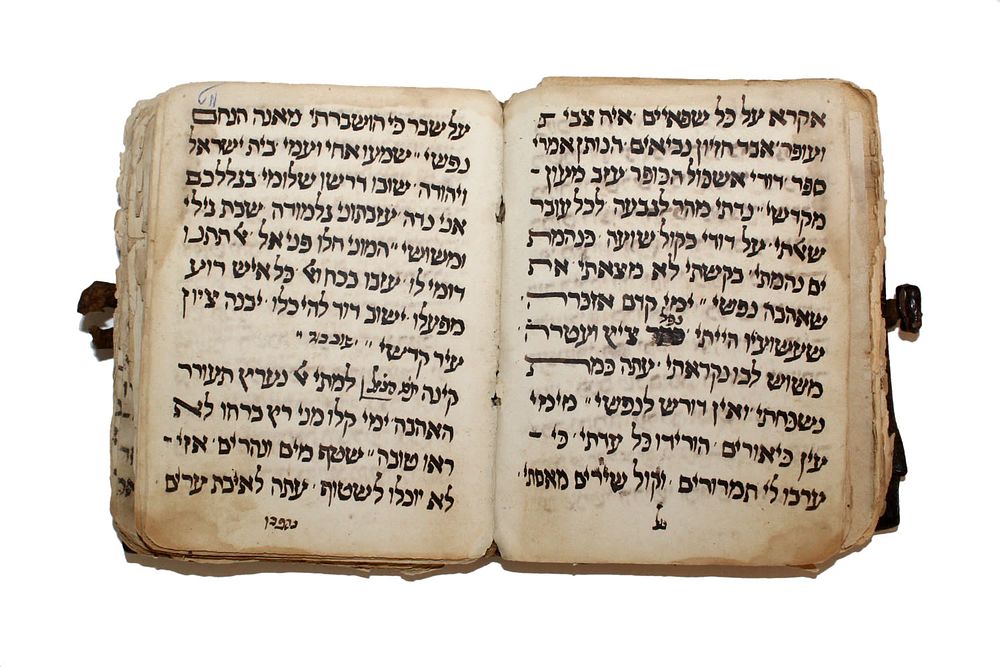 אקרא על כל שפאים · איה צבי ת
ועופר · אבד חזיון נביאים · הנותן אמרי
ספר · דודי אשכול הכופר · עזב מעון -
מקדשי " נדתי מהר לגבעה · לכל עובר
שאתי · על דודי בקול שועה · כנהמת
ים נהמתי · בקשתי לא מצאתי · את
שאהבה נפשי " ימי קדם אזכרה
נפל
שעשועיו הייתי · ציץ ועטרה ·
משוש לבו נקראתי · עתה כמת
נשכחתי · ואין דורש לנפשי " מימי
עין כיאורים · הורידו כל עדתי · כי -
ערבו לי תמרורים · וקול שירים מאסתי ·
על
על שבר כי הושברתי מאנה הנחם
נפשי " שמעו אחי ועמי · בית ישראל
ויהודה · שובו דרשו שלומי · בגללכם
אני נדה · עזבתוני גלמודה · שבת גילי
ומשושי " המוני חלו פני אל · התנו
דומי לו · עזבו בכח · כל איש רוע
מפעלו · ישוב דוד להיכלו · יבנה ציון
עיר קדשי "
קינה למתי נעריץ תעורר
האהבה · ימי קלו מני רץ ברחו לא
ראו טובה " שטף מים ונהרים · אזי -
לא יוכלו לשטוף · עתה לאיבת ערים ·